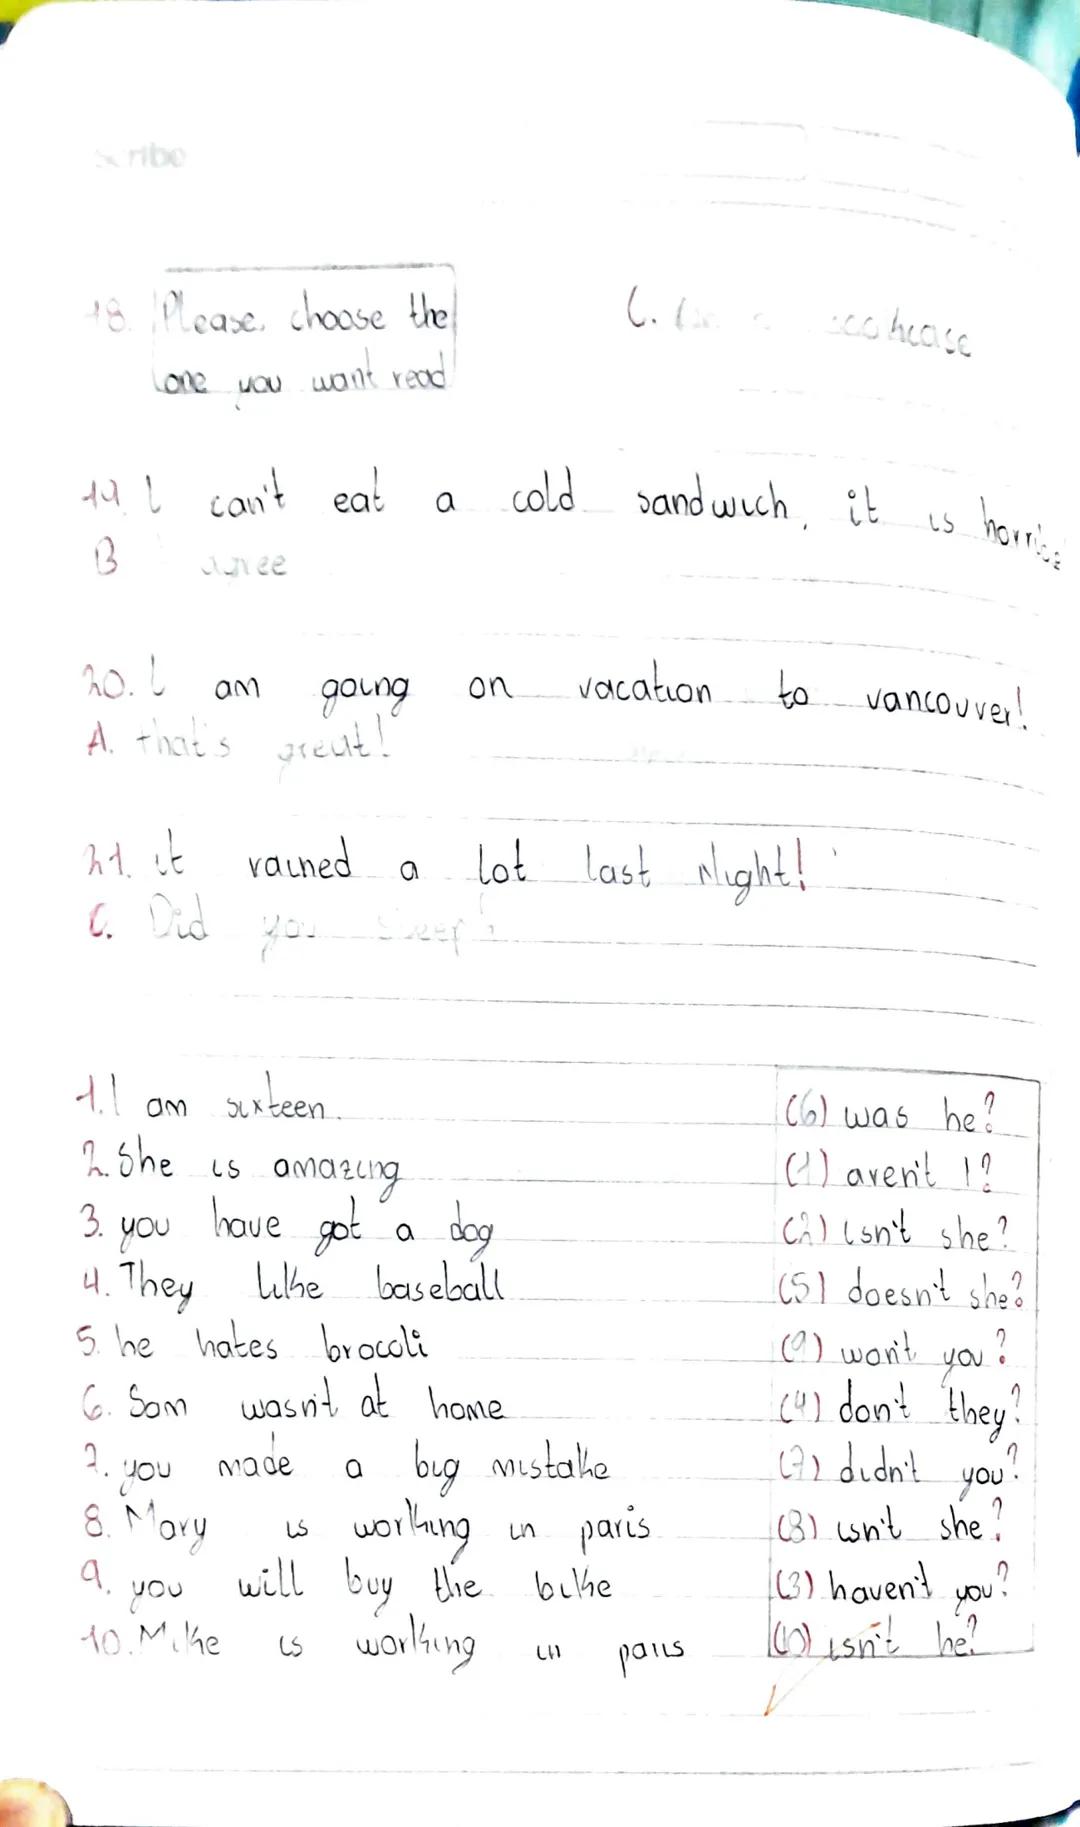 scribe
18. Please, choose the
one you want read
C.
19. I can't eat a cold sandwich, it is
B agree
20. I am going on vacation to vancouver!
A. that's great!
21. it rained a lot last Night!
C. Did you sleep?
1. I am sixteen. (6) was he?
2. She is amazing (1) aren't I?
3. you have got a dog (2) isn't she?
4. They like baseball (5) doesn't she?
5. he hates brocoli (9) won't you?
6. Sam wasn't at home (4) don't they?
7. you made a big mistake (7) didn't you?
8. Mary is working in paris (8) isn't she?
9. you will buy the bike (3) haven't you?
10. Mike is working in paris (10) isn't he?